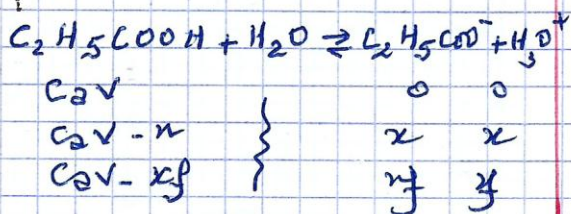 C₂H₅COOH + H₂O ⇌ C₂H₅COO⁻ + H₃O⁺
CaV 0 0
CaV - x x x
CaV - xf xf xf